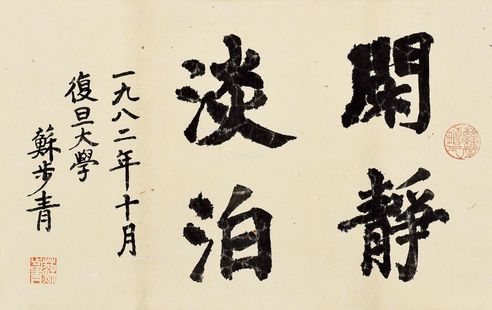 閑靜
淡泊
一九八二年十月
復旦大學
蘇步青